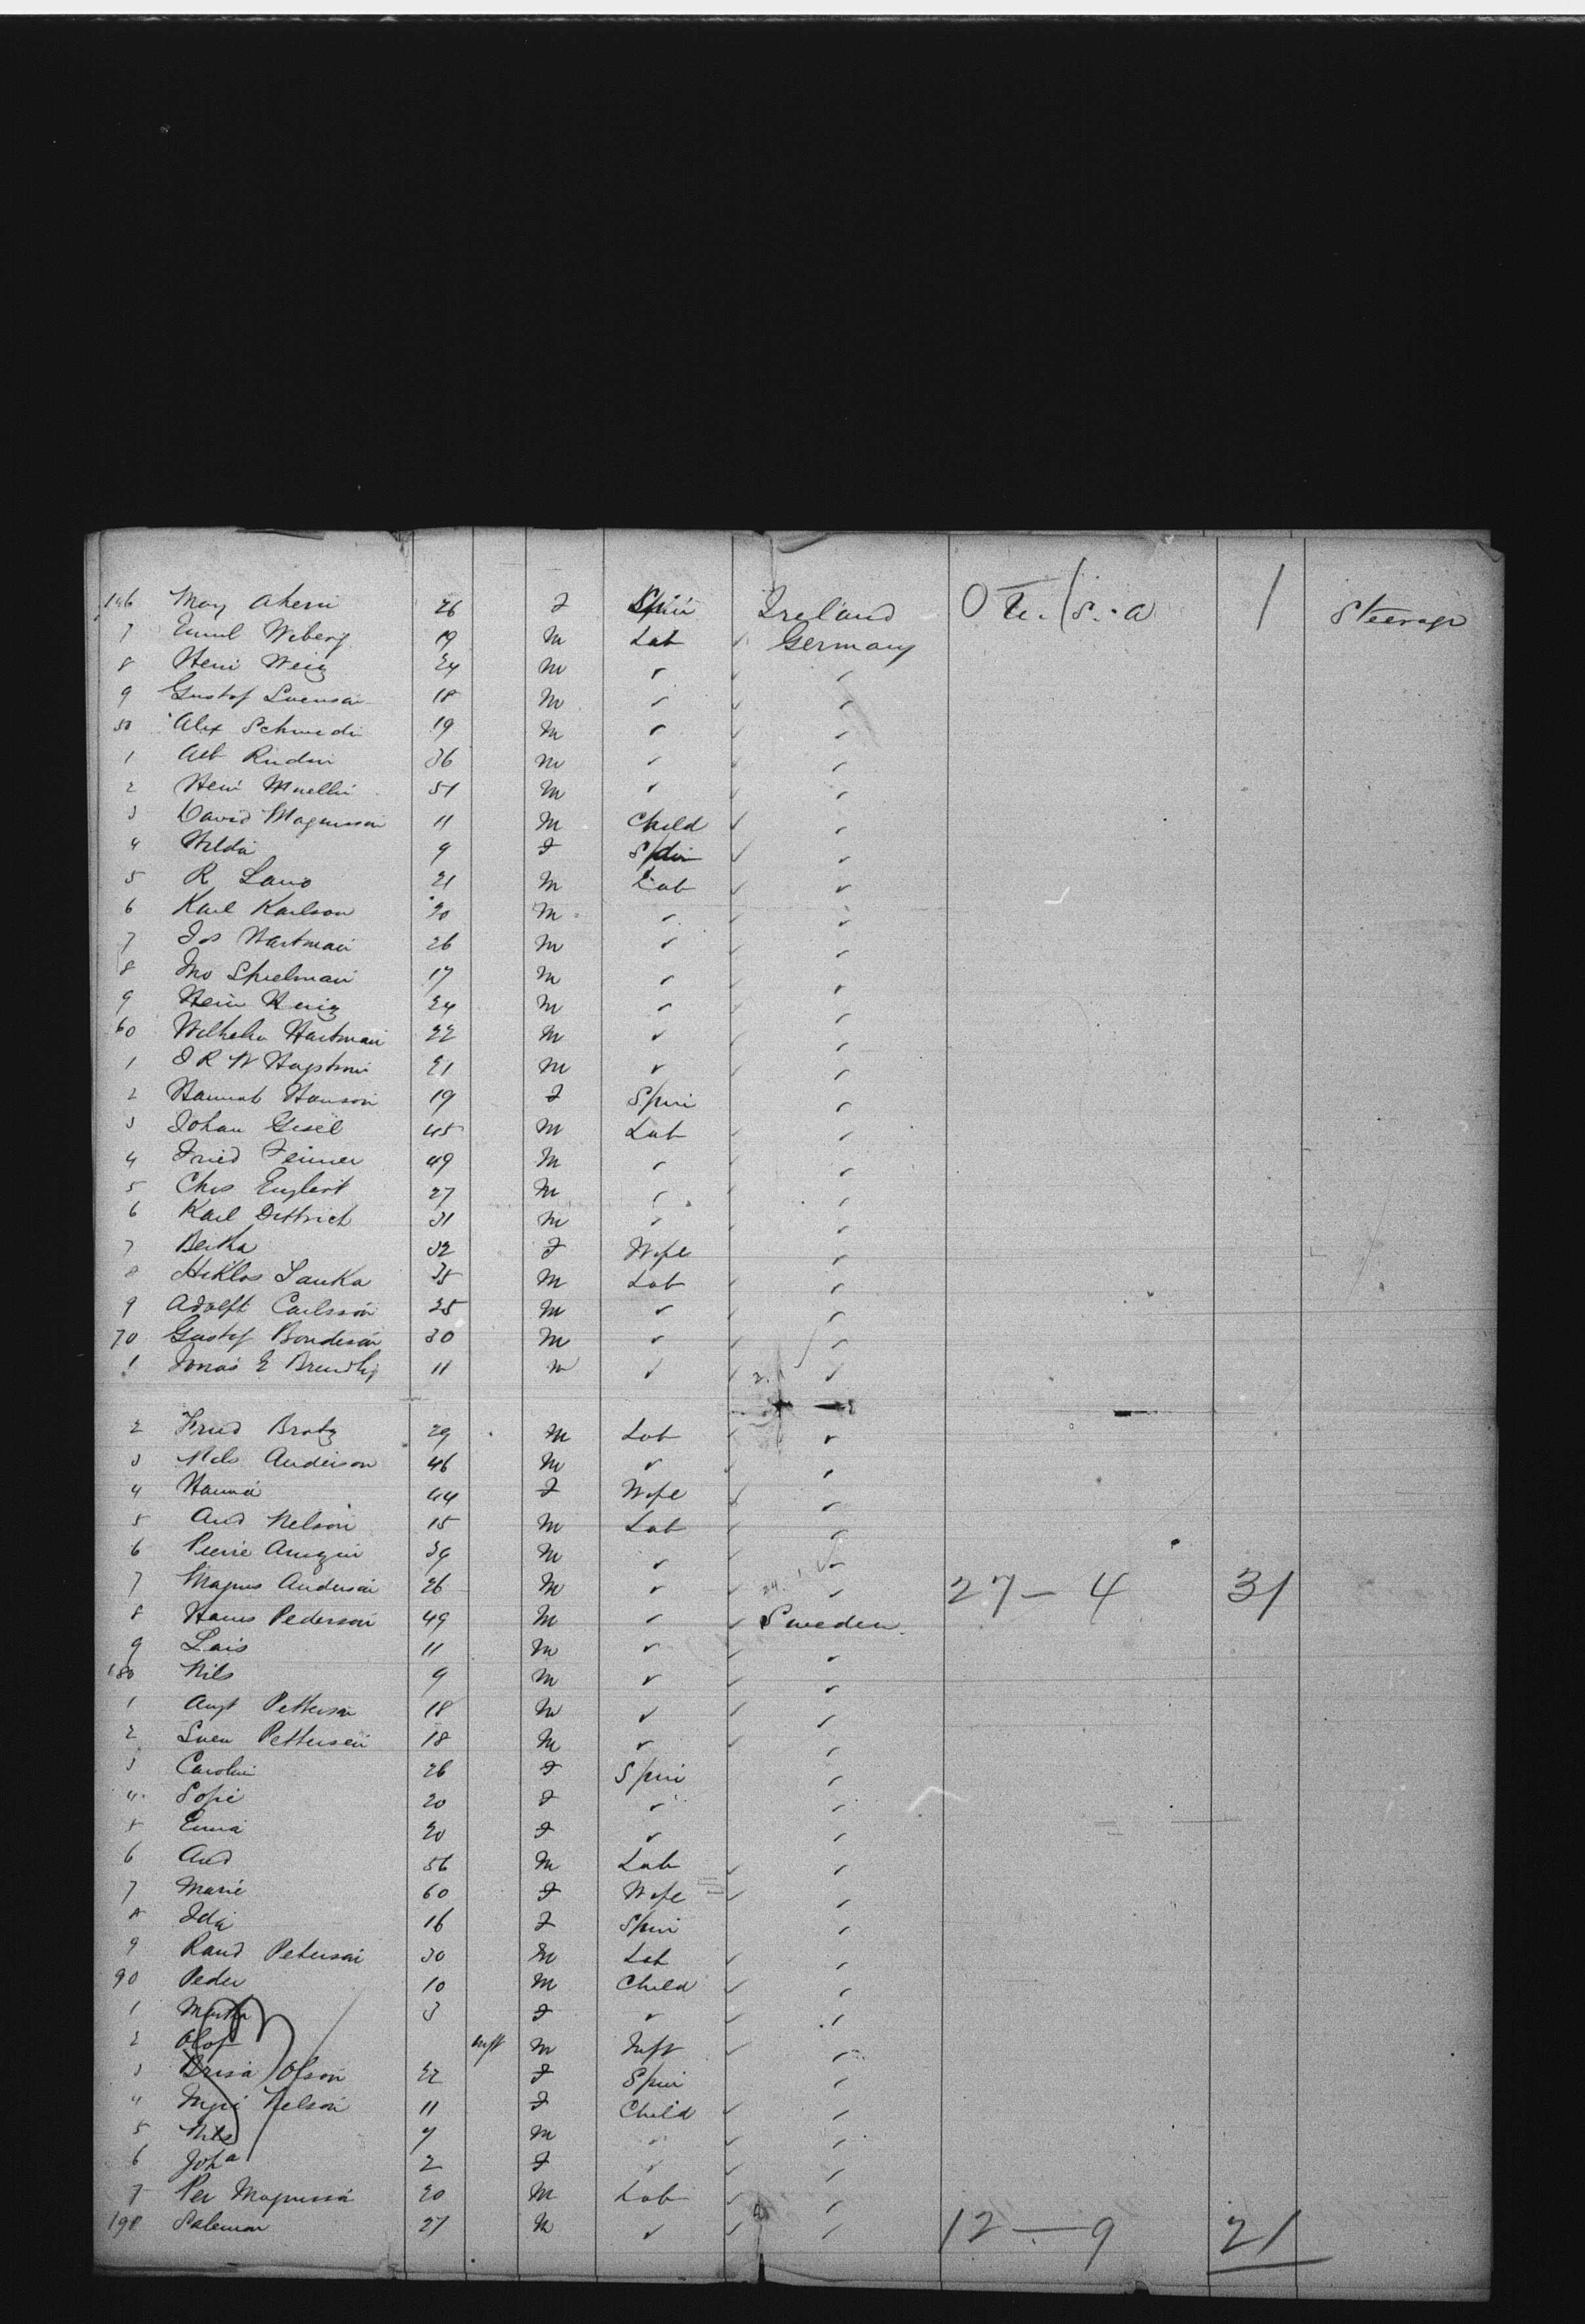 146 May Ahern 26 F Spin Ireland U.S.A 1 Steerage
7 Emil Weberg 19 M Lab ✓ Germany
8 Heni Weig 24 M ✓ ✓ ✓
9 Gustof Svenson 18 M ✓ ✓ ✓
50 Alex Schmedi 19 M ✓ ✓ ✓
1 Alb 36 M ✓ ✓ ✓
2 Heni Muellin 51 M ✓ ✓ ✓
3 David Magnusson 11 M Child ✓ ✓
4 Hilda 9 F Spin ✓ ✓
5 R 21 M Lab ✓ ✓
6 Karl Karlson 20 M ✓ ✓ ✓
7 Jos Hartman 26 M ✓ ✓ ✓
8 Jno Spielman 17 M ✓ ✓ ✓
9 Hein 24 M ✓ ✓ ✓
60 Wilhelm Hartman 22 M ✓ ✓ ✓
1 J R W 21 M ✓ ✓ ✓
2 Hannah Hanson 19 F Spin ✓
3 Johan Gesel 45 M Lab ✓ ✓
4 Fried 49 M ✓ ✓ ✓
5 Chas Englert 27 M ✓ ✓ ✓
6 Karl Dittrich 31 M ✓ ✓ ✓
7 Bertha 32 F Wife ✓
8 Miklos Janka 35 M Lab ✓ ✓
9 Adolft Carlsson 25 M ✓ ✓ ✓
70 Gustof Bondeson 30 M ✓ ✓ ✓
1 Jonas E 11 M ✓ ✓ ✓
2 Fried Brotz 29 M Lab ✓ ✓
3 Nels Anderson 46 M ✓ ✓ ✓
4 Hanna 44 F Wife ✓ ✓
5 And Nelson 15 M Lab ✓ ✓
6 Pierre 39 M ✓ ✓ ✓
7 Magnus Anderson 26 M ✓ ✓ ✓ 27 — 4 31
8 Hans Pederson 49 M ✓ ✓ Sweden
9 Lars 11 M ✓ ✓ ✓
180 Nils 9 M ✓ ✓ ✓
1 Augt Petterson 18 M ✓ ✓ ✓
2 Sven Pettersen 18 M ✓ ✓ ✓
3 Carolin 26 F Spin ✓
4 Sofie 20 F ✓ ✓
5 Emma 20 F ✓ ✓
6 And 56 M Lab ✓ ✓
7 Marie 60 F Wife ✓ ✓
8 Ida 16 F Spin ✓
9 Rand Peterson 30 M Lab ✓ ✓
90 Peder 10 M Child ✓ ✓
1 Martha 3 F ✓ ✓ ✓
2 Olof inft M Inft ✓ ✓
3 Olson 22 F Spin ✓
4 Nelson 11 F Child ✓ ✓
5 Nils 7 M ✓ ✓ ✓
6 Joha 2 F ✓ ✓ ✓
7 Per Magnusson 20 M Lab ✓ ✓
198 Salemon 27 M ✓ ✓ ✓ 12 — 9 21